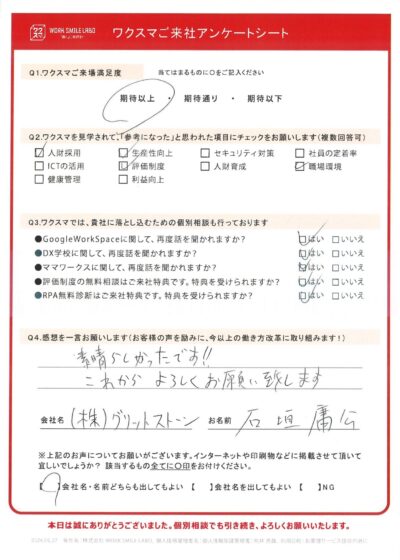 ワクスマ
WORK SMILE LABO
ワクスマご来社アンケートシート
Q1.ワクスマご来場満足度 当てはまるものに○をご記入ください
期待以上 ・ 期待通り ・ 期待以下
Q2.ワクスマを見学されて、「参考になった」と思われた項目にチェックをお願いします(複数回答可)
☑人財採用 ☑生産性向上 □セキュリティ対策 □社員の定着率
□ICTの活用 ☑評価制度 □人財育成 ☑職場環境
□健康管理 □利益向上
Q3.ワクスマでは、貴社に落とし込むための個別相談も行っております
●GoogleWorkSpaceに関して、再度話を聞かれますか? ☑はい □いいえ
●DX学校に関して、再度話を聞かれますか? ☑はい □いいえ
●ママワークスに関して、再度話を聞かれますか? ☑はい □いいえ
●評価制度の無料相談はご来社特典です。特典を受けられますか? ☑はい □いいえ
●RPA無料診断はご来社特典です。特典を受けられますか? ☑はい □いいえ
Q4.感想を一言お願いします(お客様の声を励みに、今以上の働き方改革に取り組みます!)
素晴らしかったです!!
これから よろしく お願い致します
会社名 (株)グリットストーン お名前 石垣 庸公
※上記のお声についてお願いがございます。インターネットや印刷物などに掲載させて頂いて
宜しいでしょうか? 該当するもの全てに〇印をお付けください。
【○】会社名・名前どちらも出してもよい 【 】会社名を出してもよい 【 】NG
本日は誠にありがとうございました。個別相談でも引き続き、よろしくお願いいたします。